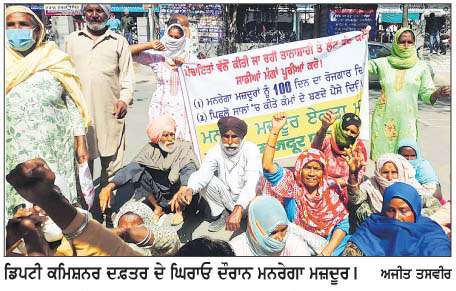 ਪੰਚਾਇਤਾਂ ਵੱਲੋਂ ਕੀਤੀ ਜਾ ਰਹੀ ਤਾਨਾਸ਼ਾਹੀ ਤੇ ਲੁੱਟ
ਸਾਡੀਆਂ ਮੰਗਾਂ ਪੂਰੀਆਂ ਕਰੋ।
(1) ਮਨਰੇਗਾ ਮਜ਼ਦੂਰਾਂ ਨੂੰ 100 ਦਿਨ ਦਾ ਰੋਜ਼ਗਾਰ
(2) ਪਿਛਲੇ ਸਾਲਾਂ 'ਚ ਕੀਤੇ ਕੰਮਾਂ ਦੇ ਬਣਦੇ ਪੈਸੇ
ਮਨਰੇਗਾ ਮਜ਼ਦੂਰ ਏਕਤਾ
ਡਿਪਟੀ ਕਮਿਸ਼ਨਰ ਦਫ਼ਤਰ ਦੇ ਘਿਰਾਓ ਦੌਰਾਨ ਮਨਰੇਗਾ ਮਜ਼ਦੂਰ। ਅਜੀਤ ਤਸਵੀਰ